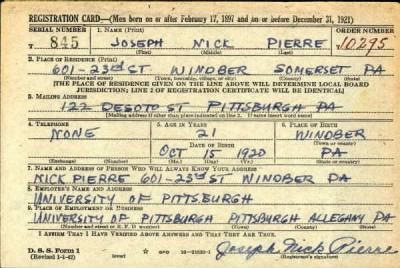 REGISTRATION CARD—(Men born on or after February 17, 1897 and on or before December 31, 1921)
SERIAL NUMBER 1. NAME (Print) ORDER NUMBER
T 845 JOSEPH NICK PIERRE T 10295
(First) (Middle) (Last)
2. PLACE OF RESIDENCE (Print)
601-23rd ST WINDBER SOMERSET PA
(Number and street) (Town, township, village, or city) (County) (State)
[THE PLACE OF RESIDENCE GIVEN ON THE LINE ABOVE WILL DETERMINE LOCAL BOARD
JURISDICTION; LINE 2 OF REGISTRATION CERTIFICATE WILL BE IDENTICAL]
3. MAILING ADDRESS
122 DESOTO ST PITTSBURGH PA
[Mailing address if other than place indicated on line 2. If same insert word same]
4. TELEPHONE 5. AGE IN YEARS 6. PLACE OF BIRTH
NONE 21 WINDBER
DATE OF BIRTH (Town or county)
OCT 15 1920 PA
(Exchange) (Number) (Mo.) (Day) (Yr.) (State or country)
7. NAME AND ADDRESS OF PERSON WHO WILL ALWAYS KNOW YOUR ADDRESS
NICK PIERRE 601-23rd ST WINDBER PA
8. EMPLOYER'S NAME AND ADDRESS
UNIVERSITY OF PITTSBURGH
9. PLACE OF EMPLOYMENT OR BUSINESS
UNIVERSITY OF PITTSBURGH PITTSBURGH ALLEGANY PA
(Number and street or R. F. D. number) (Town) (County) (State)
I AFFIRM THAT I HAVE VERIFIED ABOVE ANSWERS AND THAT THEY ARE TRUE.
D. S. S. Form 1
(Revised 1-1-42) (over) GPO Joseph Nick Pierre
(Registrant's signature)